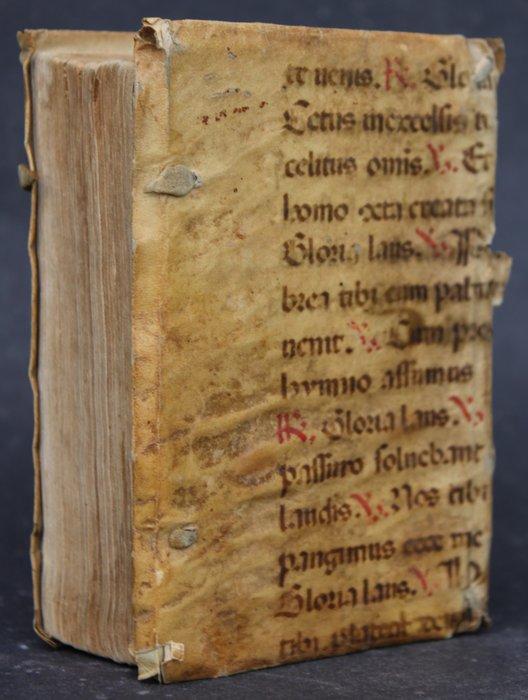 et uenis. R. Glo
Cetus in excelsis
celitus omis. V. 
homo
Gloria laus. V.
brea tibi cum pal
uenit. V. Cum pre
hymno assumus
R. Gloria laus. V.
passuro soluebant
laudis. V. Nos tibi
pangimus ecce me
Gloria laus. V.
tibi